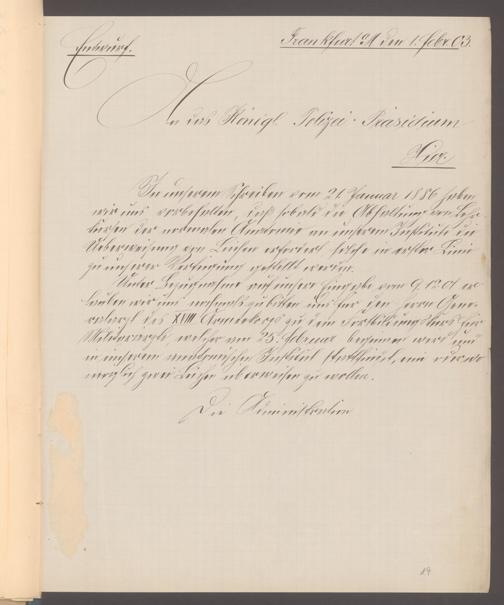 Entwurf.
Frankfurt a/M den 1. Febr. 03.
An das Königl Polizei-Präsidium
Hier
In unserem Schreiben vom 21 Januar 1886 haben
wir uns vorbehalten, daß sobald die Abhaltung von Lehr-
kursen der normalen Anatomie an unserem Institute die
Ueberweisung von Leichen erfordert solche in erster Linie
zu unserer Verfügung gestellt werden.
Unter Bezugnahme auf unsere Eingabe vom 9. er-
lauben wir uns nochmals zu bitten uns für den Herrn Gene-
ralarzt des XVIII Armeekorps zu dem Fortbildungskurs für
Militärärzte welcher am 23. Februar beginnen wird und
in unserem medizinischen Institut stattfindet, ein oder wo
möglich zwei Leichen überweisen zu wollen.
Die Administration
19